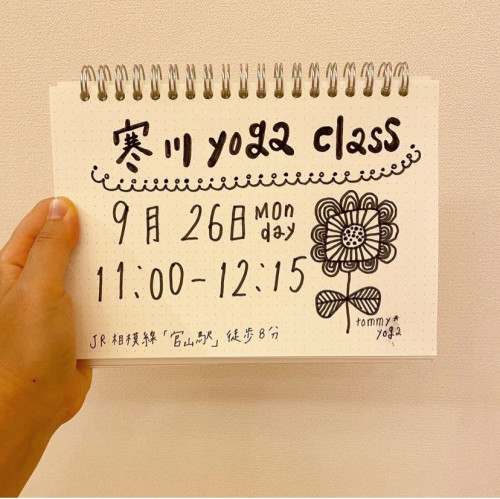 寒川 yoga class
9月 26日 Monday
11:00-12:15
JR 相模線「宮山駅」徒歩8分
tommy*
yoga